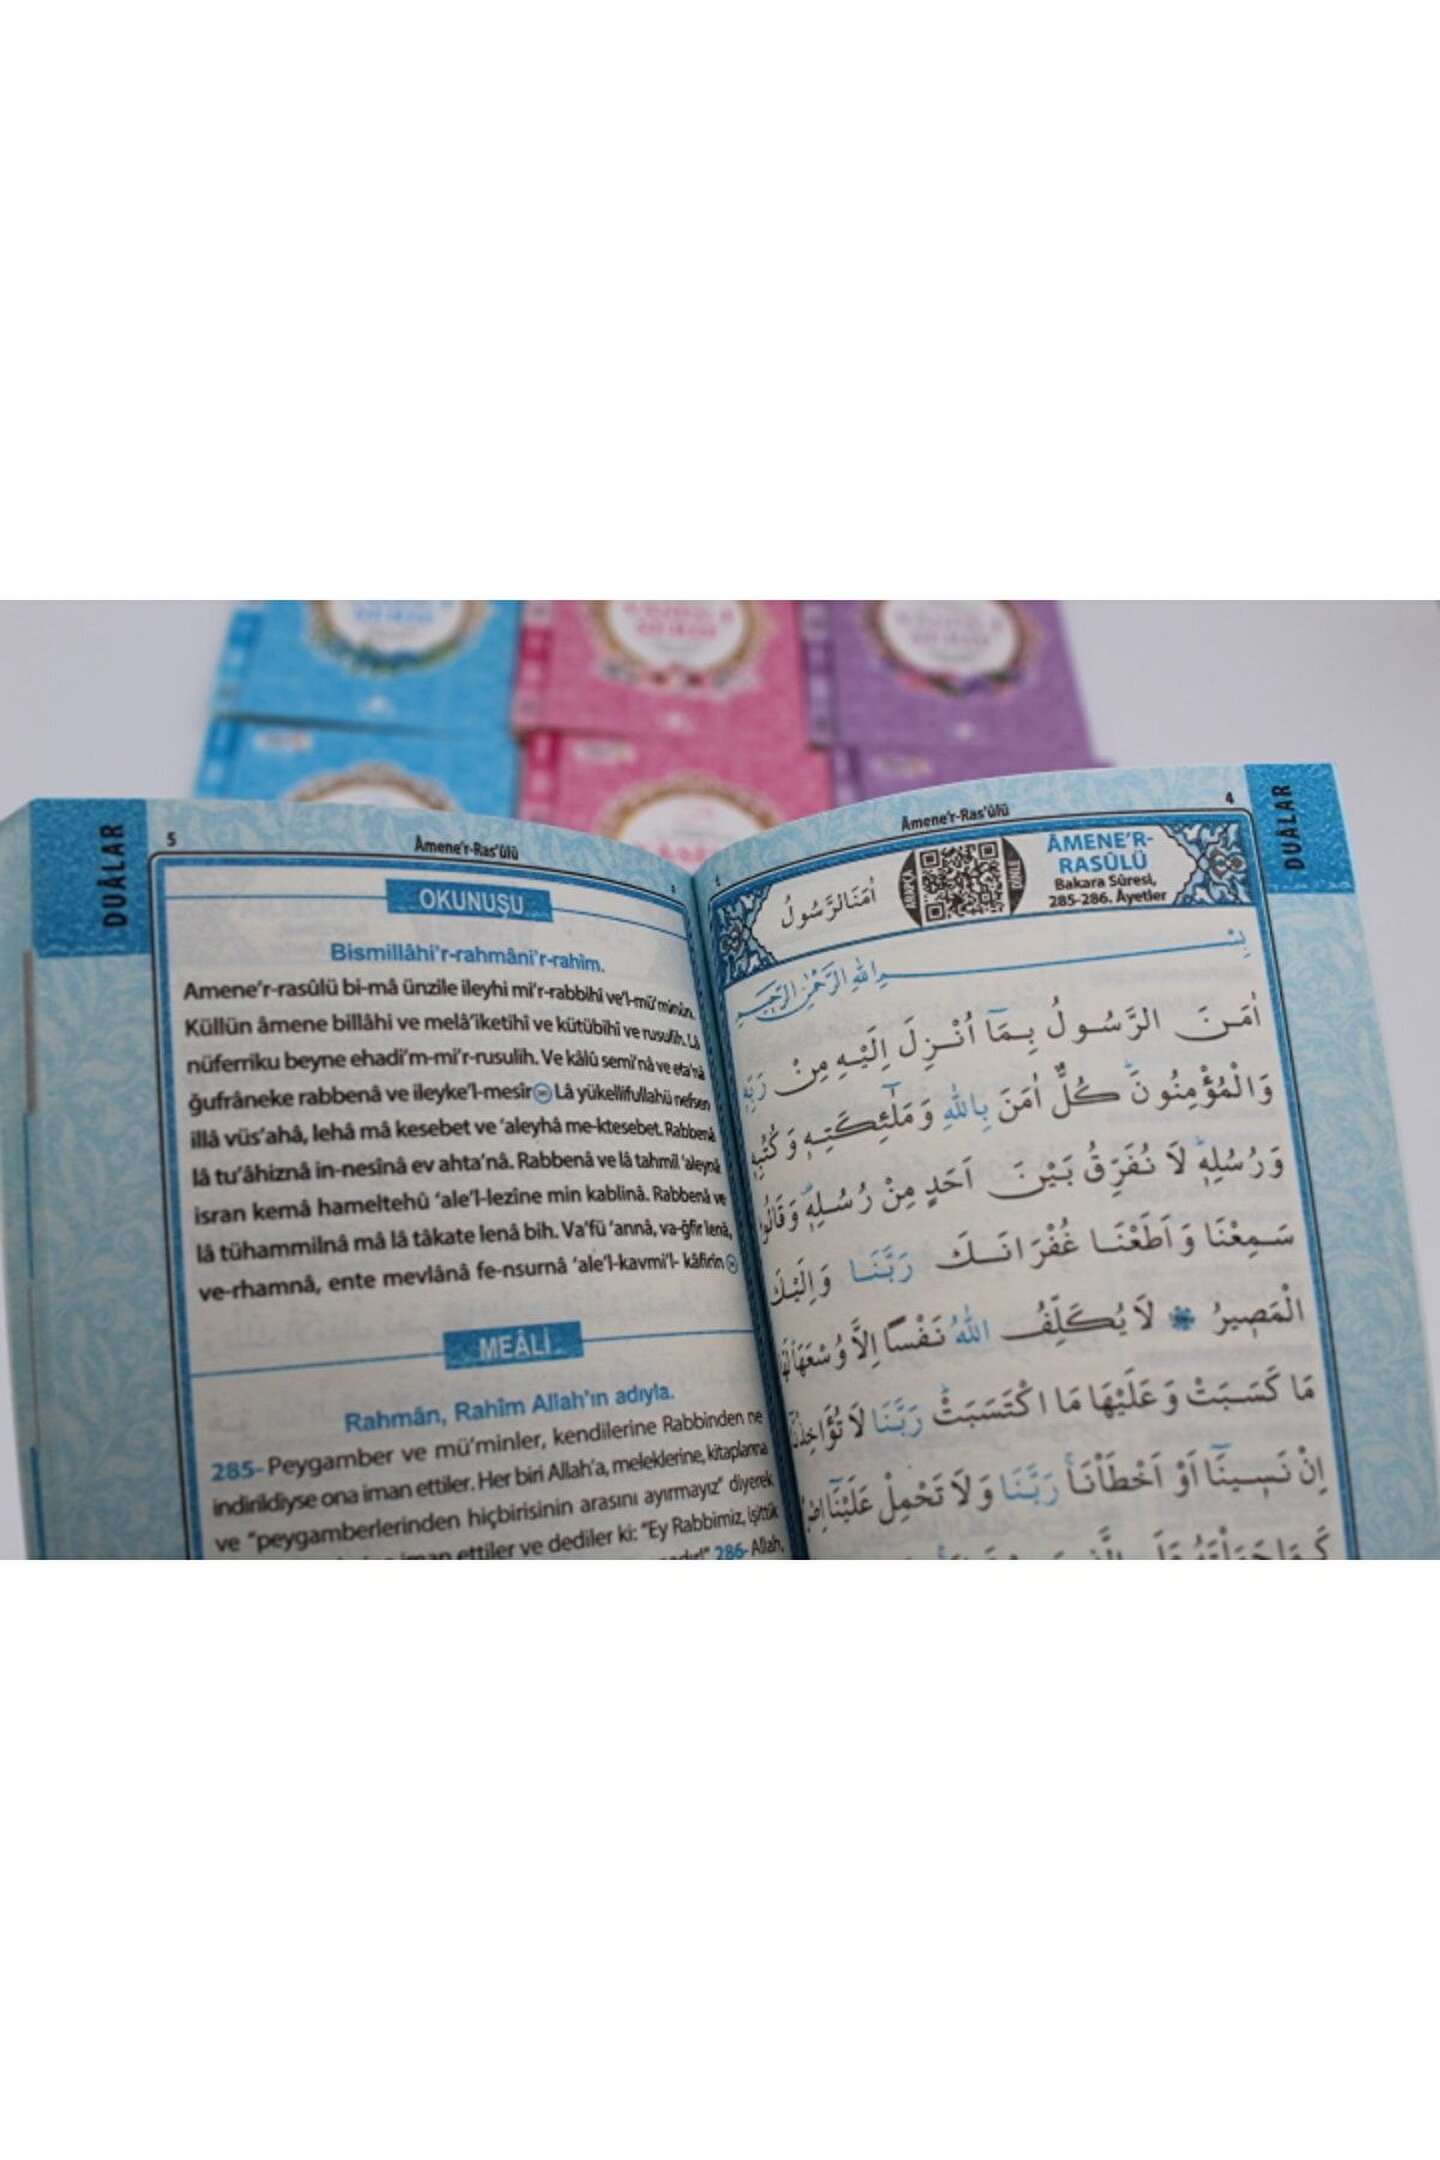 DUÂLAR
5
Âmene'r-Ras'ûlü
OKUNUŞU
Bismillâhi'r-rahmâni'r-rahîm.
Amene'r-rasûlü bi-mâ ünzile ileyhi mi'r-rabbihî ve'l-mü'minûn.
Küllün âmene billâhi ve melâ'iketihî ve kütübihî ve rusulih. Lâ
nüferriku beyne ehadi'm-mi'r-rusulih. Ve kâlû semi'nâ ve eta'nâ
ğufrâneke rabbenâ ve ileyke'l-mesîr Lâ yükellifullahü nefsen
illâ vüs'ahâ, lehâ mâ kesebet ve 'aleyhâ me-ktesebet. Rabbenâ
lâ tu'âhiznâ in-nesînâ ev ahta'nâ. Rabbenâ ve lâ tahmil 'aleynâ
isran kemâ hameltehû 'ale'l-lezîne min kablinâ. Rabbenâ ve
lâ tühammilnâ mâ lâ tâkate lenâ bih. Va'fü 'annâ, va-ğfir lenâ,
ve-rhamnâ, ente mevlânâ fe-nsurnâ 'ale'l-kavmi'l- kâfirîn
MEÂLİ
Rahmân, Rahîm Allah'ın adıyla.
285- Peygamber ve mü'minler, kendilerine Rabbinden ne
indirildiyse ona iman ettiler. Her biri Allah'a, meleklerine, kitaplarına
ve "peygamberlerinden hiçbirisinin arasını ayırmayız" diyerek
iman ettiler ve dediler ki: "Ey Rabbimiz, işittik
286- Allah,
4
Âmene'r-Ras'ûlü
DUÂLAR
اٰمَنَ الرَّسُولُ
ARAPÇA
DİNLE
ÂMENE'R-
RASÛLÜ
Bakara Sûresi,
285-286. Âyetler
بِسْمِ اللّٰهِ الرَّحْمٰنِ الرَّحِيمِ
اٰمَنَ الرَّسُولُ بِمَٓا اُنْزِلَ اِلَيْهِ مِنْ رَبِّهٖ
وَالْمُؤْمِنُونَؕ كُلٌّ اٰمَنَ بِاللّٰهِ وَمَلٰٓئِكَتِهٖ وَكُتُبِهٖ
وَرُسُلِهٖؕ لَا نُفَرِّقُ بَيْنَ اَحَدٍ مِنْ رُسُلِهٖ وَقَالُوا
سَمِعْنَا وَاَطَعْنَا غُفْرَانَكَ رَبَّنَا وَاِلَيْكَ
الْمَصٖيرُ لَا يُكَلِّفُ اللّٰهُ نَفْسًا اِلَّا وُسْعَهَا لَهَا
مَا كَسَبَتْ وَعَلَيْهَا مَا اكْتَسَبَتْؕ رَبَّنَا لَا تُؤَاخِذْنَٓا
اِنْ نَسٖينَٓا اَوْ اَخْطَأْنَاۚ رَبَّنَا وَلَا تَحْمِلْ عَلَيْنَٓا